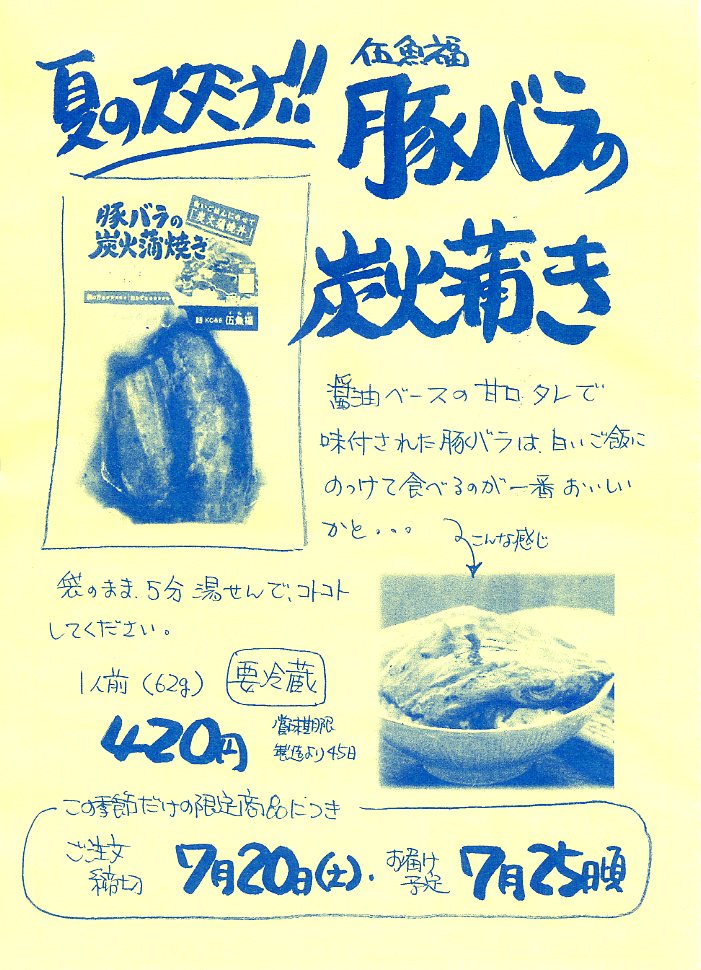 夏のスタミナ!!
伍魚福
豚バラの
炭火蒲き
豚バラの
炭火蒲焼き
伍魚福
醤油ベースの甘口タレで
味付された豚バラは、白いご飯に
のっけて食べるのが一番おいしい
かと・・・
こんな感じ
袋のまま、5分湯せんで、コトコト
してください。
1人前(62g)
要冷蔵
420円
賞味期限
製造より45日
この季節だけの限定商品につき
ご注文
締切
7月20日(土)・
お届け
予定
7月25日頃